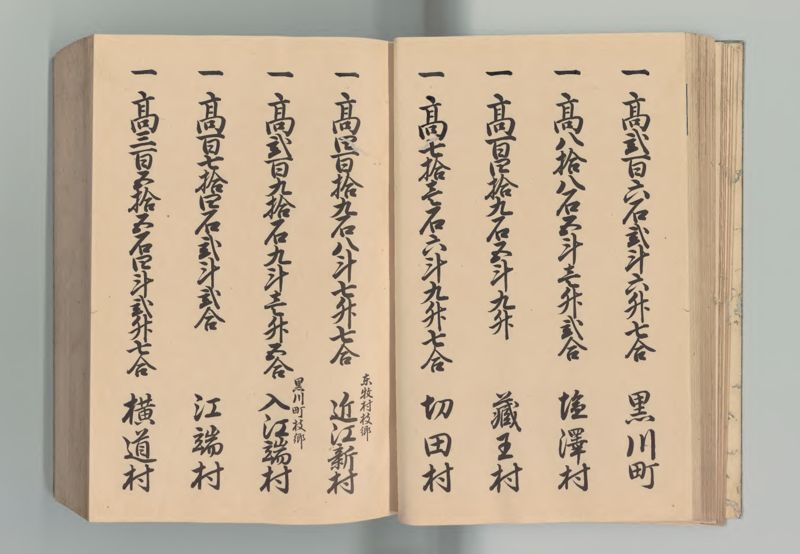 一 高弐百六石弐斗六升七合 黒川町
一 高八拾八石五斗壱升弐合 塩澤村
一 高百四拾九石五斗九升 蔵王村
一 高七拾壱石六斗九升七合 切田村
一 高四百拾九石八斗七升七合 東牧村枝郷 近江新村
一 高弐百九拾石九斗壱升五合 黒川町枝郷 入江端村
一 高百七拾四石弐斗弐合 江端村
一 高三百五拾五石四斗弐升七合 横道村